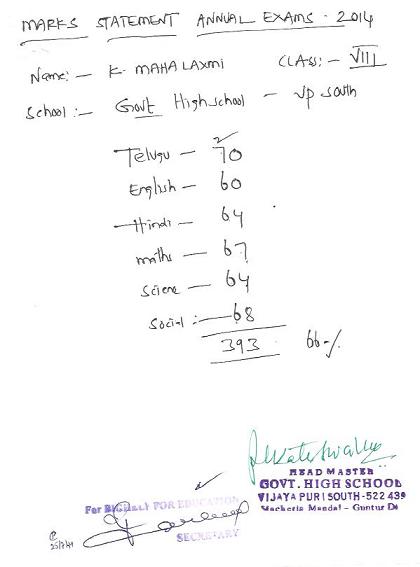 MARKS STATEMENT ANNUAL EXAMS - 2014
Name:- K. MAHA LAXMI CLASS:- VIII
School:- Govt High school - VP South
Telugu - 70
English - 60
Hindi - 64
maths - 67
Science - 64
Social:- 68
393 66-/.
HEAD MASTER
GOVT. HIGH SCHOOL
VIJAYA PURI SOUTH-522 439
Macherla Mandal - Guntur Dt
For FOR EDUCATION
SECRETARY